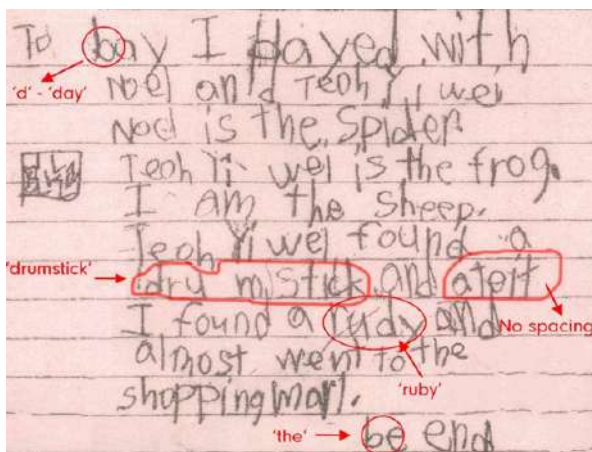 To bay I played with
'd' - 'day'
Noel and Teoh Yi wei
Noel is the Spider
Teoh Yi wei is the frog.
I am the sheep.
Teoh Yi wei found a
'drumstick' dru mstick and
I found a rudy and
No spacing
almost went to the
'ruby'
shopping marl.
'the' be end